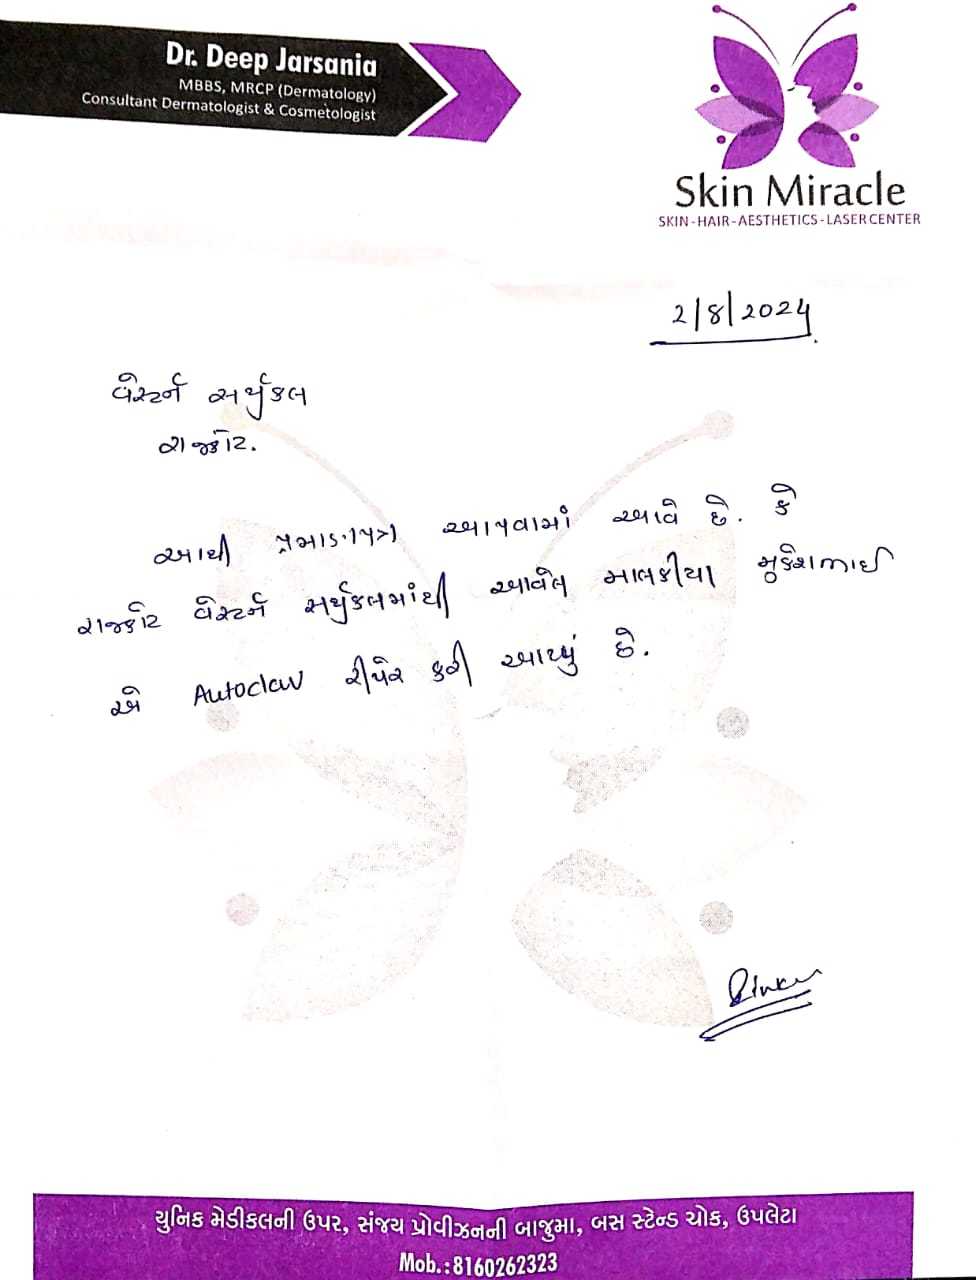 Dr. Deep Jarsania
MBBS, MRCP (Dermatology)
Consultant Dermatologist & Cosmetologist
Skin Miracle
SKIN-HAIR-AESTHETICS-LASER CENTER
2/8/2024
વેસ્ટર્ન સર્જીકલ
રાજકોટ.
આથી પ્રમાણપત્ર આપવામાં આવે છે. કે
રાજકોટ વેસ્ટર્ન સર્જીકલમાંથી આવેલ માલકીયા મુકેશભાઈ
એ Autoclav રીપેર કરી આપ્યું છે.
યુનિક મેડીકલની ઉપર, સંજય પ્રોવીઝનની બાજુમા, બસ સ્ટેન્ડ ચોક, ઉપલેટા
Mob.:8160262323